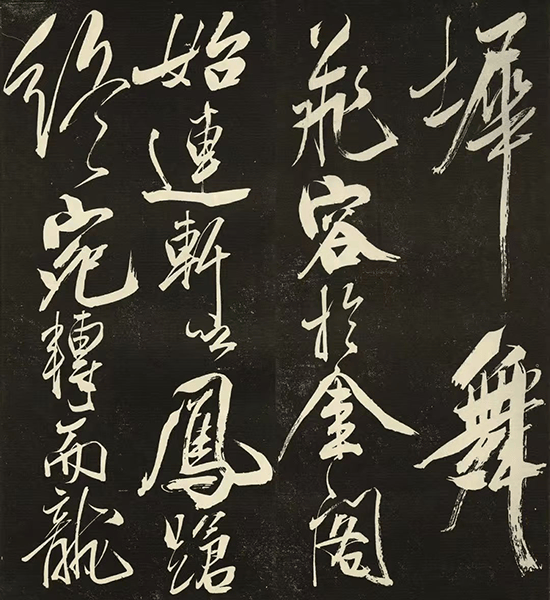 墀舞
飛容於金閣
始連軒以鳳蹌
終宛轉而龍